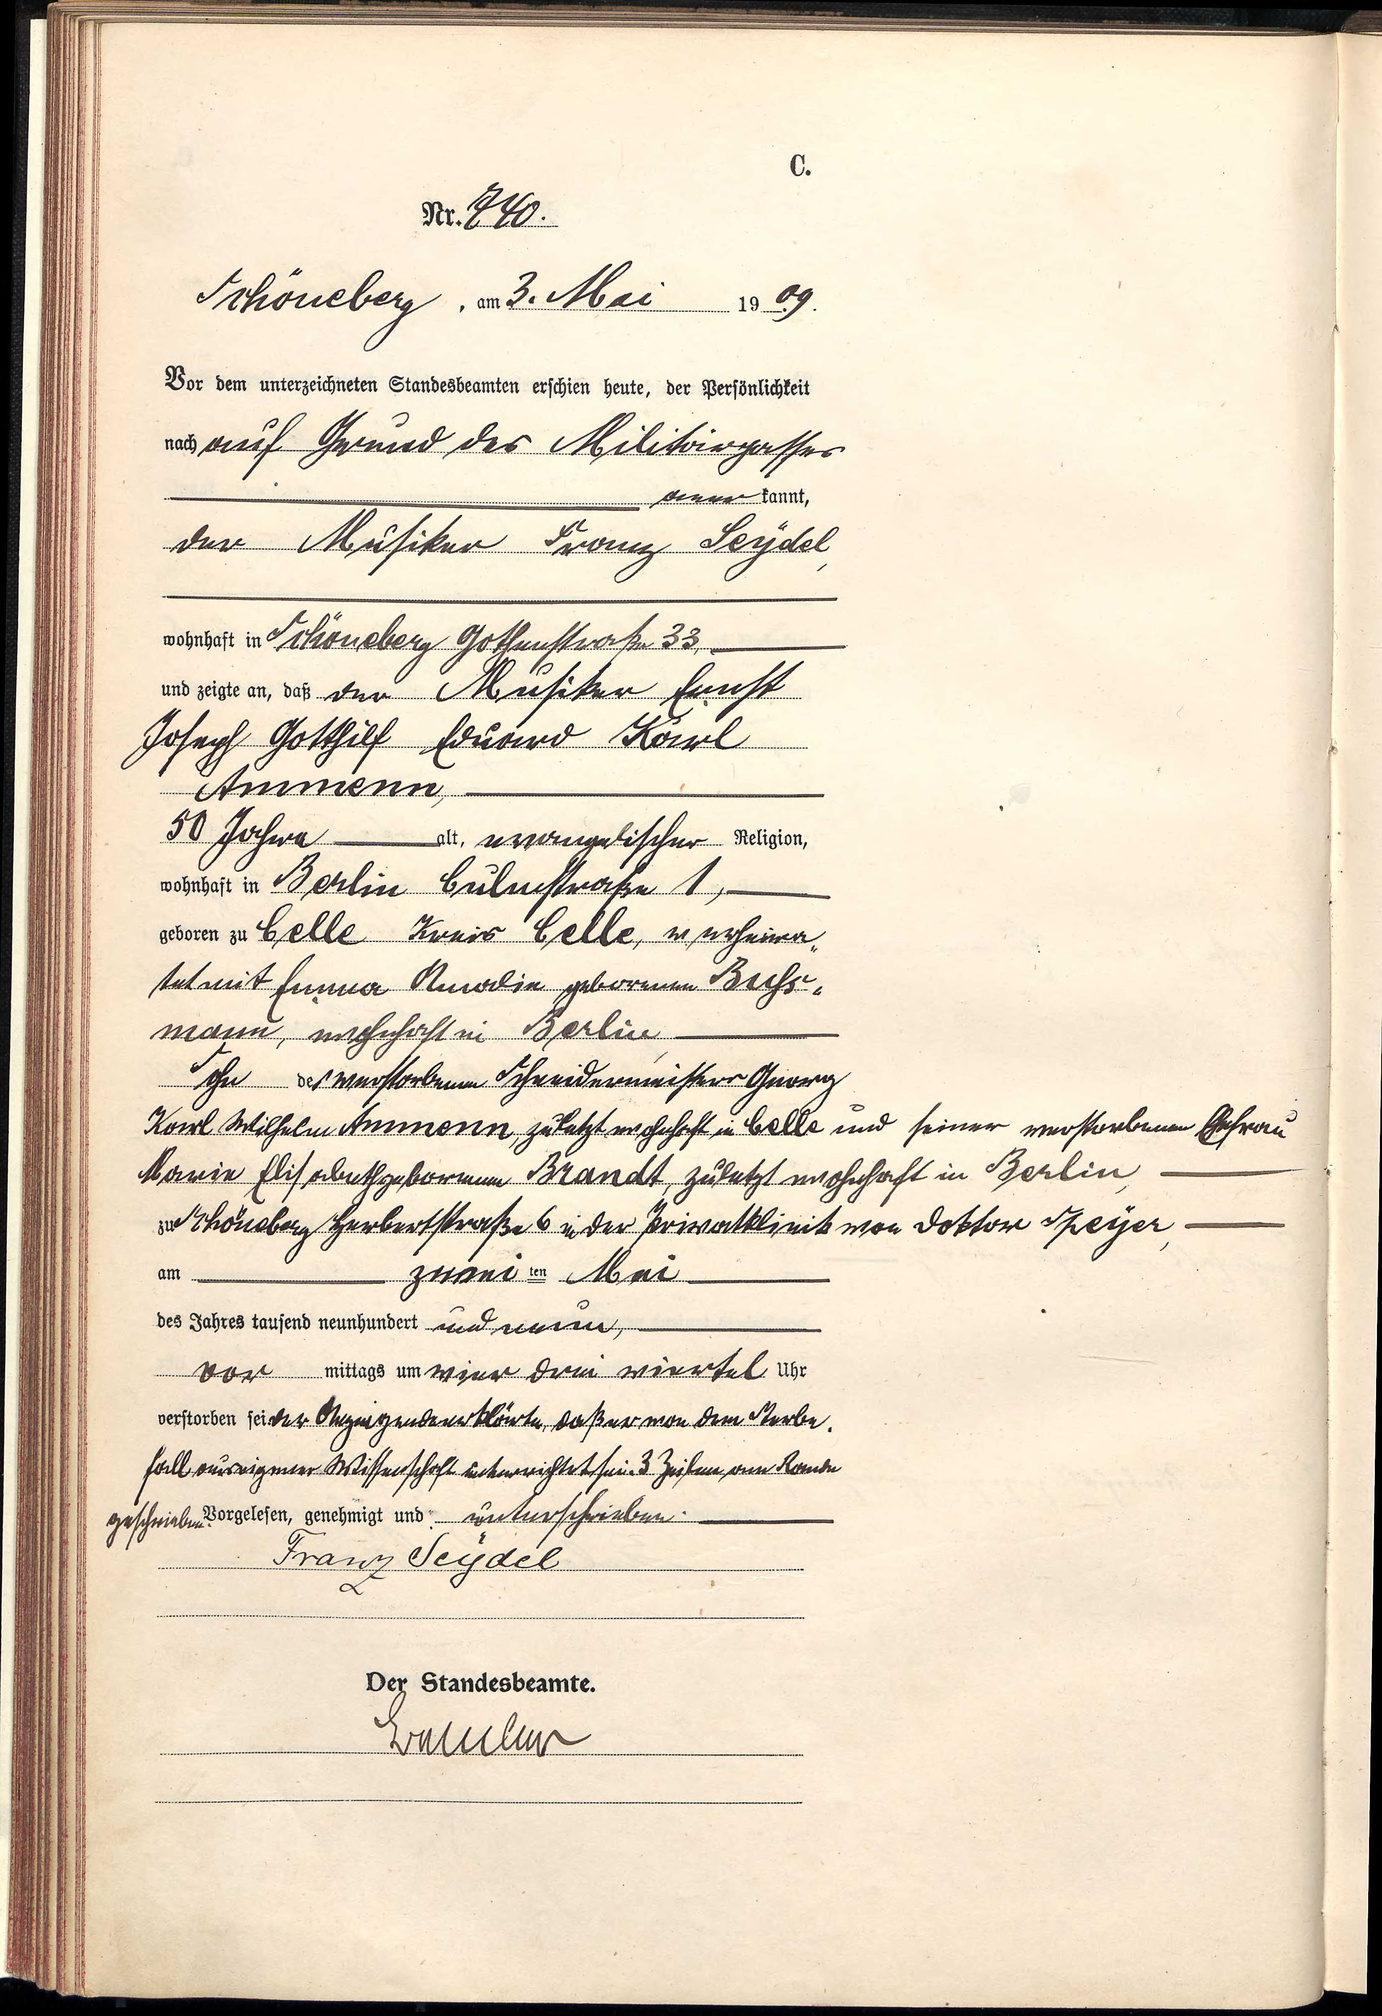 C.
Nr. 740.
Schöneberg, am 3. Mai 1909.
Vor dem unterzeichneten Standesbeamten erschien heute, der Persönlichkeit
nach auf Grund des Militärpasses
anerkannt,
der Musiker Franz Seydel,
wohnhaft in Schöneberg Gothenstraße 33,
und zeigte an, daß der Musiker Ernst
Joseph Gotthilf Eduard Karl
Ammenn,
50 Jahre alt, evangelischer Religion,
wohnhaft in Berlin Culmstraße 1,
geboren zu Celle Kreis Celle, verheira„
tet mit Emma Amalie geborenen Buch„
mann, wohnhaft in Berlin,
Sohn des verstorbenen Schneidermeisters Georg
Karl Wilhelm Ammenn zuletzt wohnhaft in Celle und seiner verstorbenen Ehefrau
Marie Elisabeth geborenen Brandt, zuletzt wohnhaft in Berlin,
zu Schöneberg Herbertstraße 6 in der Privatklinik von Doktor Speyer,
am zweiten Mai
des Jahres tausend neunhundert und neun,
vor mittags um vier drei viertel Uhr
verstorben sei der Anzeigende erklärte, daß er von dem Sterbe„
fall aus eigener Wissenschaft unterrichtet sei. 3 Zeilen am Rande
geschrieben. Vorgelesen, genehmigt und unterschrieben.
Franz Seydel
Der Standesbeamte.